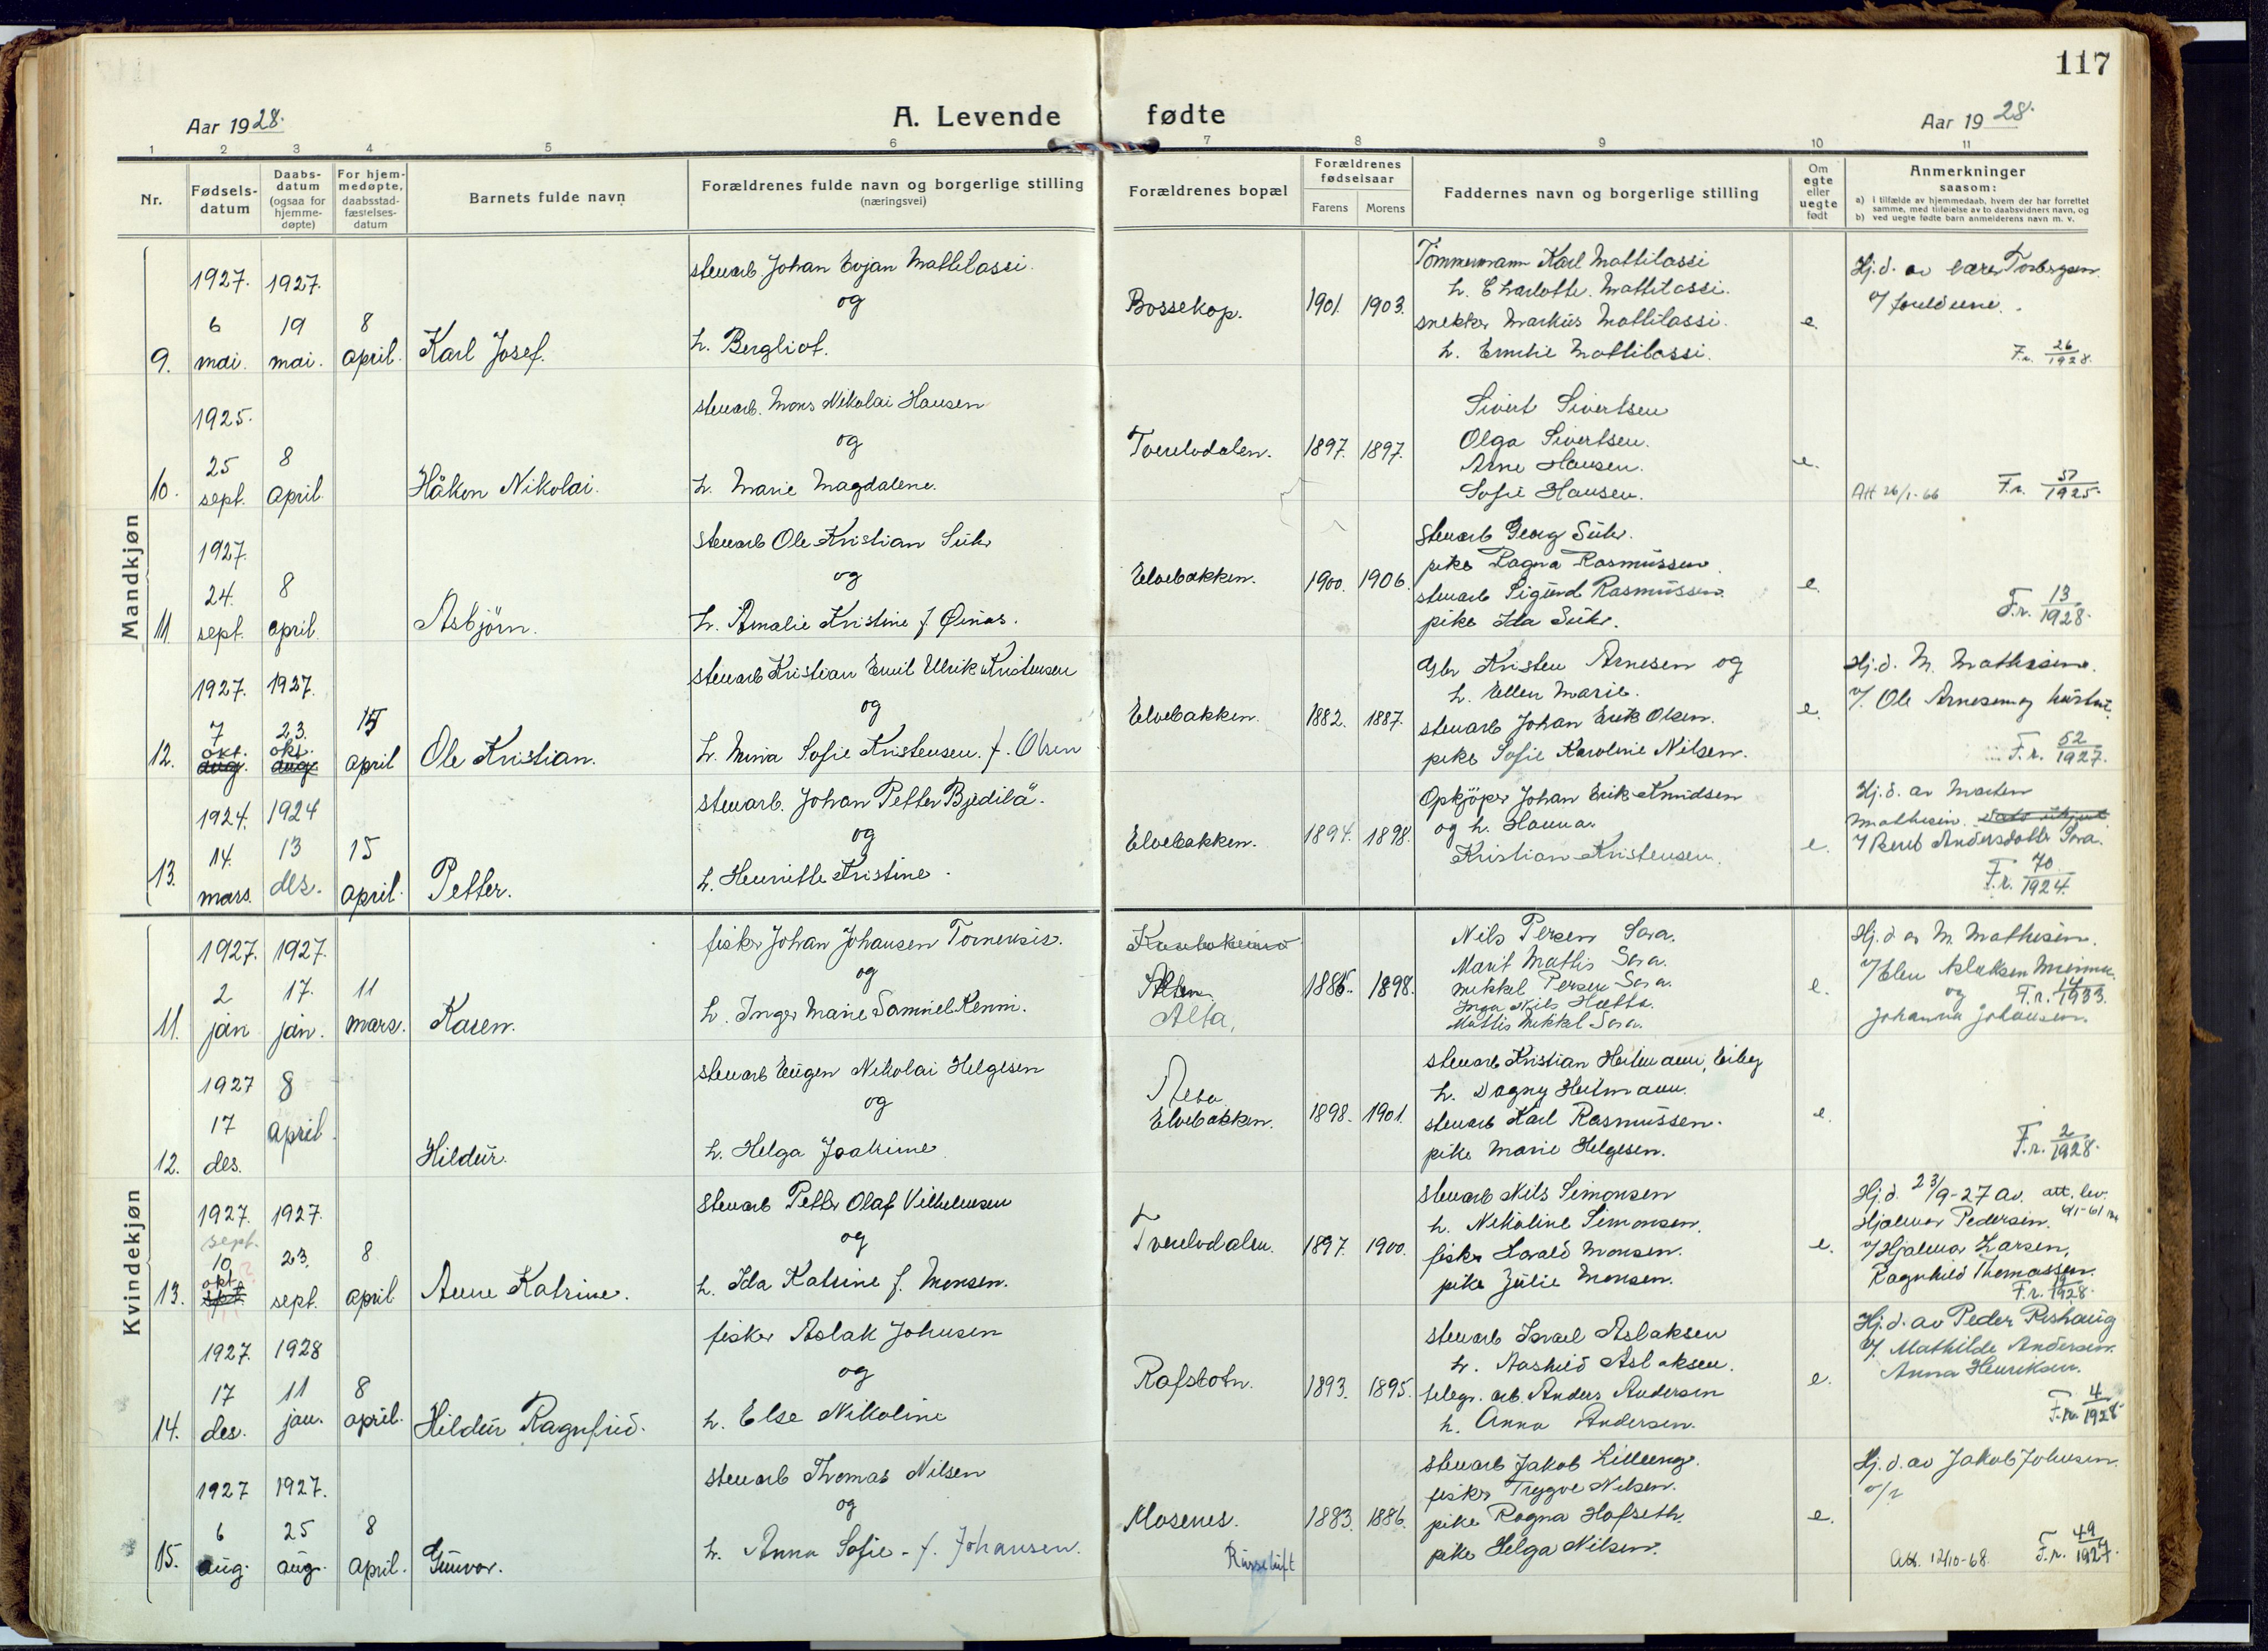 117
Aar 1928.
A. Levende fødte
Aar 1928.
1 2 3 4 5 6 7 8 9 10 11
Nr.
Fødsels-datum
Daabs-datum (ogsaa for hjemme-døpte)
For hjem-medøpte, daabsstad-fæstelses-datum
Barnets fulde navn
Forældrenes fulde navn og borgerlige stilling (næringsvei)
Forældrenes bopæl
Forældrenes fødselsaar
Farens Morens
Faddernes navn og borgerlige stilling
Om egte eller uegte født
Anmerkninger
saasom:
a) i tilfælde av hjemmedaab, hvem der har forrettet samme, med tilføielse av to daabsvidners navn, og
b) ved uegte fødte barn anmelderens navn m. v.
Mandkjøn
9.
1927. 6 mai.
1927. 19 mai.
8 april.
Karl Josef.
stenarb Johan Evjan Mattilassi.
og
h. Bergliot.
Bossekop.
1901. 1903.
Tømmermann Karl Mattilassi
h. Charlotte. Mattilassi.
snekker Markus Mattilassi.
h. Emilie Mattilassi.
e.
Hj.d. av lærer Torbergsen.
v/ foreldrene.
F.r. 26/1928.
10.
1925. 25 sept.
8 april.
Håkon Nikolai.
stenarb. Mons Nikolai Hansen
og
h. Marie Magdalene.
Tverelvdalen.
1897. 1897.
Sivert Sivertsen
Olga Sivertsen.
Arne Hansen.
Sofie Hansen.
e.
Att 26/1-66
F.r. 51/1925.
11.
1927. 24. sept.
8 april.
Asbjörn.
stenarb Ole Kristian Suhr
og
h. Amalie Kristine f. Øinas.
Elvebakken.
1900. 1906.
stenarb Georg Suhr.
pike Ragna Rasmussen.
stenarb Sigurd Rasmussen.
pike Ida Suhr.
e.
F.r. 13/1928.
12.
1927. 7 okt. aug.
1927. 23. okt. aug.
15 april
Ole Kristian.
stenarb Kristian Emil Ulrik Kristensen
og
h. Mina Sofie Kristensen. f. Olsen
Elvebakken.
1882. 1887.
Gbr Kristen Arnesen og
h. Ellen Marie.
stenarb Johan Erik Olsen.
pike Sofie Karoline Nilsen.
e.
Hj.d. M. Mathisen.
v/. Ole Arnesen og hustru.
F.r. 52/1927.
13.
1924. 14. mars.
1924 13 des.
15 april.
Petter.
stenarb. Johan Petter Bjedilä.
og
h. Henriette Kristine.
Elvebakken.
1894. 1898.
Opkjöper Johan Erik Knudsen
og h. Hanna.
Kristian Kristensen.
e.
Hj.d. av Morten
Mathisen.
v/ Berit Andersdatter Sara.
F.r. 70/1924.
Kvindekjøn
11.
1927. 2 jan
1927. 17. jan.
11 mars.
Karen.
fisker Johan Johansen Tornensis.
og
h. Inger Marie Samuel Kemi.
Kautokeino
Alten.
Alta,
1885. 1898.
Nils Persen Sara.
Marit Mattis Sara.
Mikkel Persen Sara.
Inga Nils Hætta.
Mattis Mikkel Sara.
e.
Hj.d av M. Mathisen.
v/ Elen Aslaksen
og F.r. 14/1933.
Johanna Johansen.
12.
1927 17 des.
8 april.
Hildur.
stenarb Eugen Nikolai Helgesen
og
h. Helga Joakime
Elvebakken.
1898. 1901.
stenarb Kristian Heitmann, Eiby
h. Dagny Heitmann.
stenarb Karl Rasmussen.
pike Marie Helgesen.
e.
F.r. 2/1928.
13.
1927. sept. 10 okt. sept
1927. 23. sept.
8 april
Anne Katrine.
stenarb Petter Olaf Vilhelmsen
og
h. Ida Katrine f. Monsen.
Tverelvdalen.
1897. 1900.
stenarb Nils Simonsen
h. Nikoline Simonsen.
fisker Harald Monsen.
pike Julie Monsen.
e.
Hj.d. 23/9-27 av. att. lev.
Hjalmar Pedersen. 6/1-61
v/ Hjalmar Larsen,
Ragnhild Thomassen.
F.r. 19/1928.
14.
1927. 17 des.
1928 11 jan.
8 april.
Hildur Ragnfrid.
fisker Aslak Johnsen
og
h. Else Nikoline
Rafsbotn.
1893. 1895.
stenarb Israel Aslaksen
h. Aashild Aslaksen.
telegr. arb. Anders Andersen
h. Anna Andersen.
e.
Hj.d. av Peder Reshaug
v/. Mathilde Andersen.
Anna Henriksen.
F.r. 4/1928.
15.
1927 6 aug.
1927. 25 aug.
8 april.
Gunvor.
stenarb Thomas Nilsen
og
h. Anna Sofie - f. Johansen.
Mosenes.
Russeluft
1883. 1886.
stenarb Jakob Lilleeng.
fisker Trygve Nilsen.
pike Ragna Hofseth.
pike Helga Nilsen.
e.
Hj.d. av Jakob Johnsen.
Att. 12/10-68.
F.r. 49/1927.